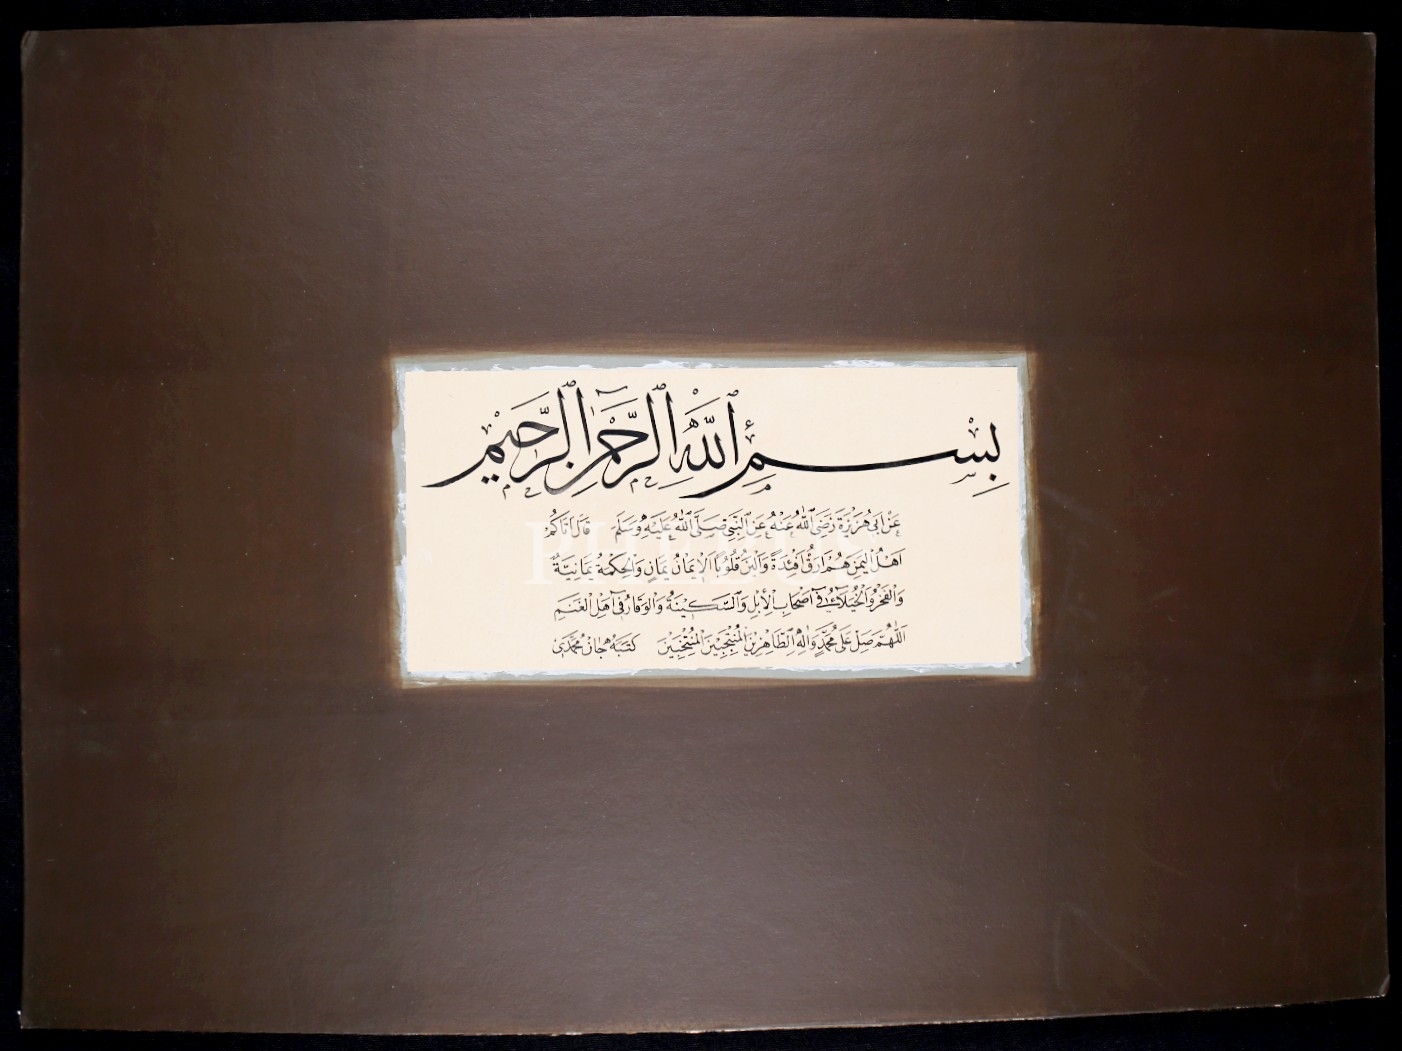 بِسْمِ ٱللَّهِ ٱلرَّحْمٰنِ ٱلرَّحِيمِ
عَنْ اَبِي هُرَيْرَةَ رَضِيَ ٱللّٰهُ عَنْهُ عَنِ النَّبِيِّ صَلَّى ٱللّٰهُ عَلَيْهِ وَسَلَّمَ قَالَ اَتَاكُمْ
اَهْلُ الْيَمَنِ هُمْ اَرَقُّ اَفْئِدَةً وَاَلْيَنُ قُلُوبًا اَلْاِيمَانُ يَمَانٍ وَالْحِكْمَةُ يَمَانِيَّةٌ
وَالْفَخْرُ وَالْخُيَلَاءُ فِي اَصْحَابِ الْاِبِلِ وَالسَّكِينَةُ وَالْوَقَارُ فِي اَهْلِ الْغَنَمِ
اَللّٰهُمَّ صَلِّ عَلَى مُحَمَّدٍ وَاٰلِهِ الطَّاهِرِينَ الْمُنْتَجَبِينَ الْمُنْتَخَبِينَ كتبه